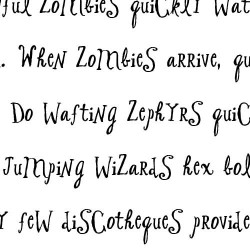 ful Zombies quickly wat
. When Zombies arrive, qu
Do Wafting Zephyrs quic
Jumping Wizards hex bol
y few discotheques provide